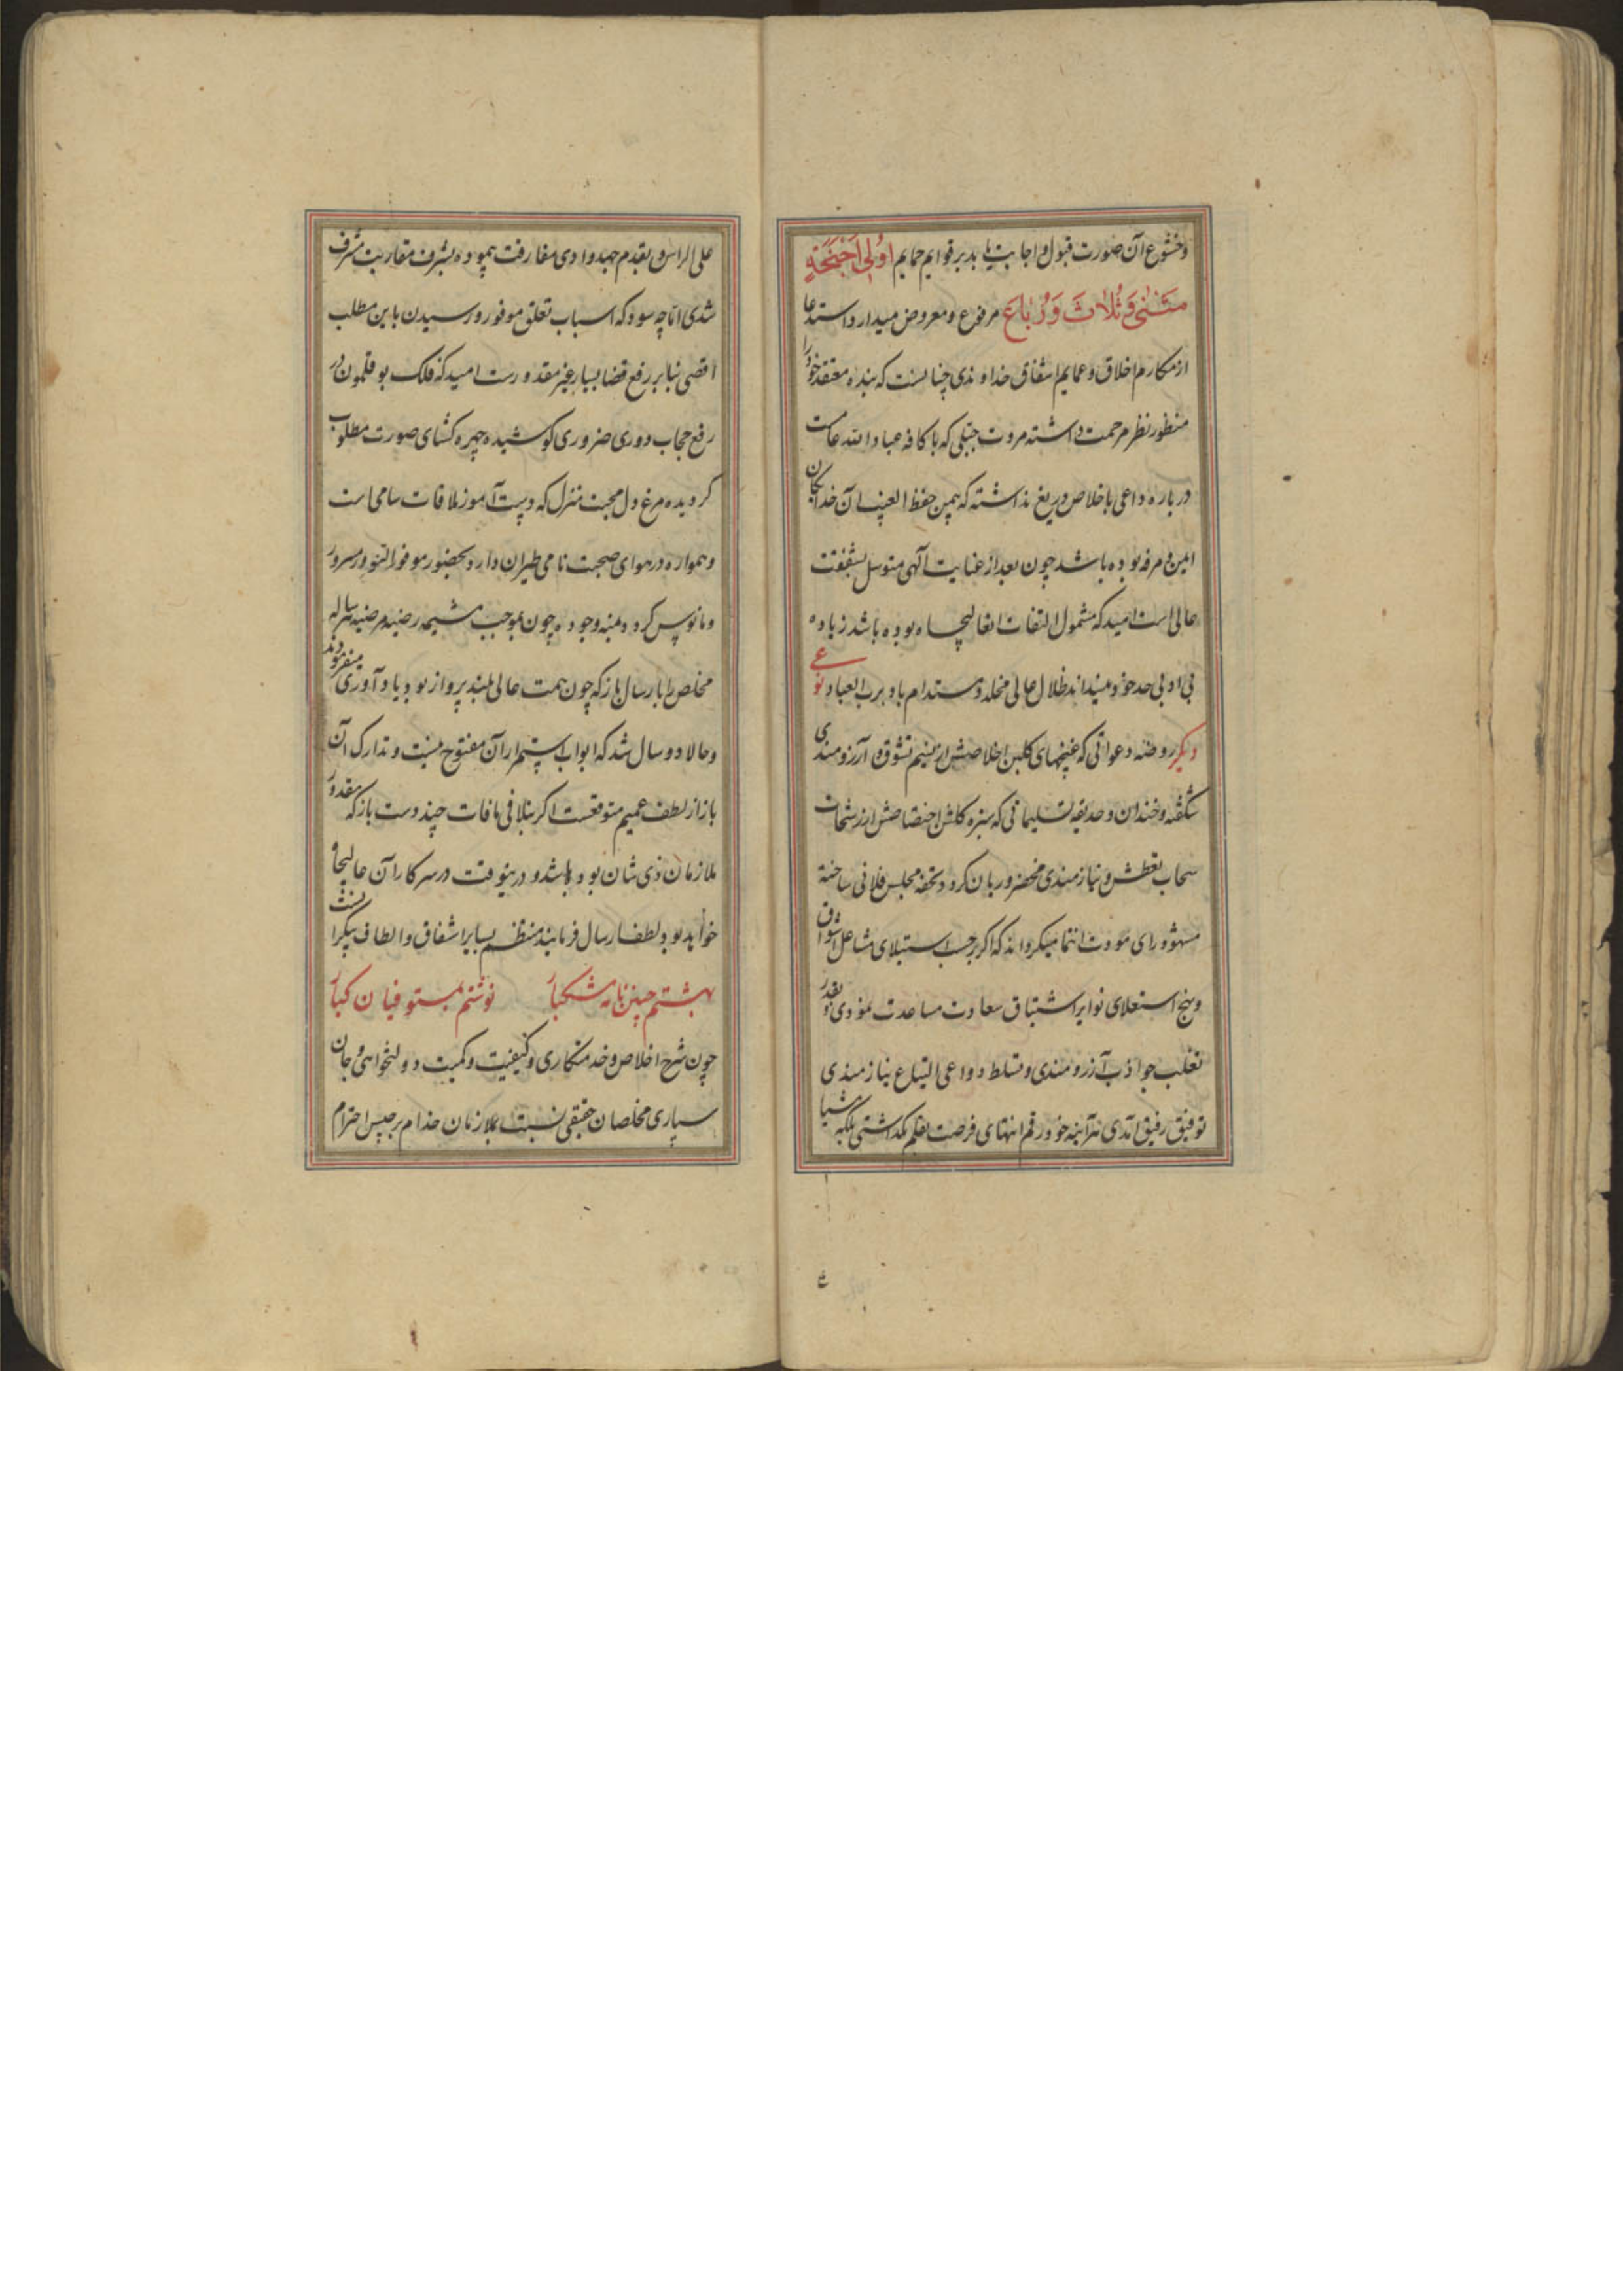 وخشوع آن صورت قبول و اجابت یابد بر قوایم حمایم اُولِی اَجْنِحَةٍ
مَثْنٰی وَ ثُلاٰثَ وَ رُبٰاعَ مرفوع و معروض میدارد استدعا
از مکارم اخلاق و عمایم اشفاق خداوندی چنانست که بنده معتقد خود را
منظور نظر مرحمت داشته مروت جبلی که با کافه عباد الله عامست
درباره داعی باخلاص دریغ نداشته که بیمن حفظ الغیب آن خدایکان
امین و مرفه بوده باشد چون بعد از عنایت آلهی متوسل بشفقت
عالی است امید که مشمول التفات ابقا لیجاه بوده باشد زیاده
بی ادبی حد خود نمیداند ظلال عالی مخلد و مستدام باد برب العباد نوعی
دیگر روضه دعواتی که غنچهای کلبن اخلاصش از نسیم تشوق و آرزومندی
شکفته و خندان و حدیقه تسلیماتی که سبزه کلشن اختصاصش از رشحات
سحاب تعطش و نیازمندی مخضر و ریان کردد تحفه مجلس فلانی ساخته
مشهود رای مودت انتما میکرداند که اکر بحسب استیلای مشاعل اشواق
و نهج استعلای نوایر اشتیاق سعادت مساعدت نمودی و بقدر
تغلب جواذب آرزومندی و تسلط دواعی التیاع نیازمندی
توفیق رفیق آمدی هرآینه خود رقم انتهای فرصت بقلم نکداشتی بلکه شیا
علی الراس بقدم جهد وادی مفارقت پیموده بشرف مقاربت مشرف
شدی اما چه سود که اسباب تعلق موفور و رسیدن باین مطلب
اقصی بنابر رفع قضا بسیار غیر مقدورست امید که فلک بوقلمون در
رفع حجاب دوری ضروری کوشیده چهره کشای صورت مطلوب
کردیده مرغ دل محبت منزل که دست آموز ملاقات سامی است
و همواره در هوای صحبت نامی طیران دارد بحضور موفور النور مسرور
و مانوس کردد بمنه وجوده چون بموجب شیمه رضیه مرضیه هر ساله
مخلص را بارسال باز که چون همت عالی بلند پرواز بود یاد آوری میفرمودند
و حالا دو سال شد که ابواب استمرار آن مفتوح نیست و تدارک آن
باز از لطف عمیم متوقعست اکر بتلافی مافات چند دست باز که مقدور
ملازمان ذی شان بوده باشد و درینوقت در سرکار آن عالیجاه
خواهد بود لطفا ارسال فرمایند منظم بسایر اشفاق و الطاف بیکرانست
بهشتم چنین نامه مشکبار نوشتم بمستوفیان کبار
چون شرح اخلاص و خدمتکاری و کیفیت و کمیت دولتخواهی و جان
سپاری مخلصان حقیقی نسبت بملازمان خدام برجیس احترام